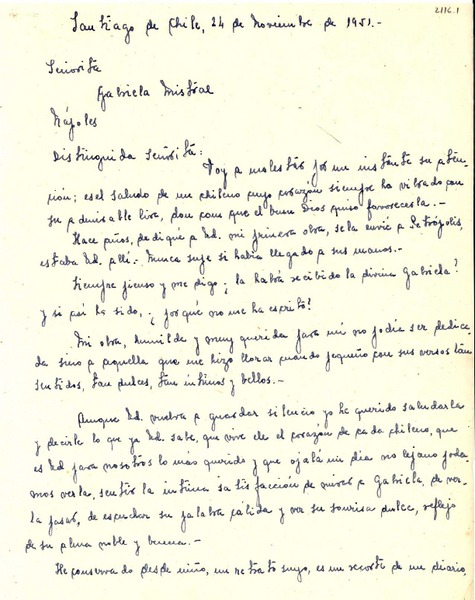 2116.1
Santiago de Chile, 24 de Noviembre de 1951.-
Señorita
Gabriela Mistral
Nápoles
Distinguida Señorita:
Voy a molestar por un instante su aten-
ción; es el saludo de un chileno cuyo corazón siempre ha vibrado con
su admirable lira, don con que el buen Dios quiso favorecerla.-
Hace años, dediqué a Ud. mi primera obra, se la envié a Petrópolis,
estaba Ud. allí.- Nunca supe si había llegado a sus manos.-
Siempre pienso y me digo; ¿la habrá recibido la divina Gabriela?
y si así ha sido, ¿por qué no me ha escrito?
Mi obra, humilde y muy querida para mí no podía ser dedica-
da sino a aquella que me hizo llorar cuando pequeño con sus versos tan
sentidos, tan dulces, tan íntimos y bellos.-
Aunque Ud. vuelva a guardar silencio yo he querido saludarla
y decirle lo que ya Ud. sabe, que vive en el corazón de cada chileno, que
es Ud para nosotros lo más querido y que ojalá un día no lejano poda
mos verla, sentir la íntima satisfacción de mirar a Gabriela, de ver-
la pasar, de escuchar su palabra cálida y ver su sonrisa dulce, reflejo
de su alma noble y buena.-
He conservado desde niño, un retrato suyo, es un recorte de un diario,